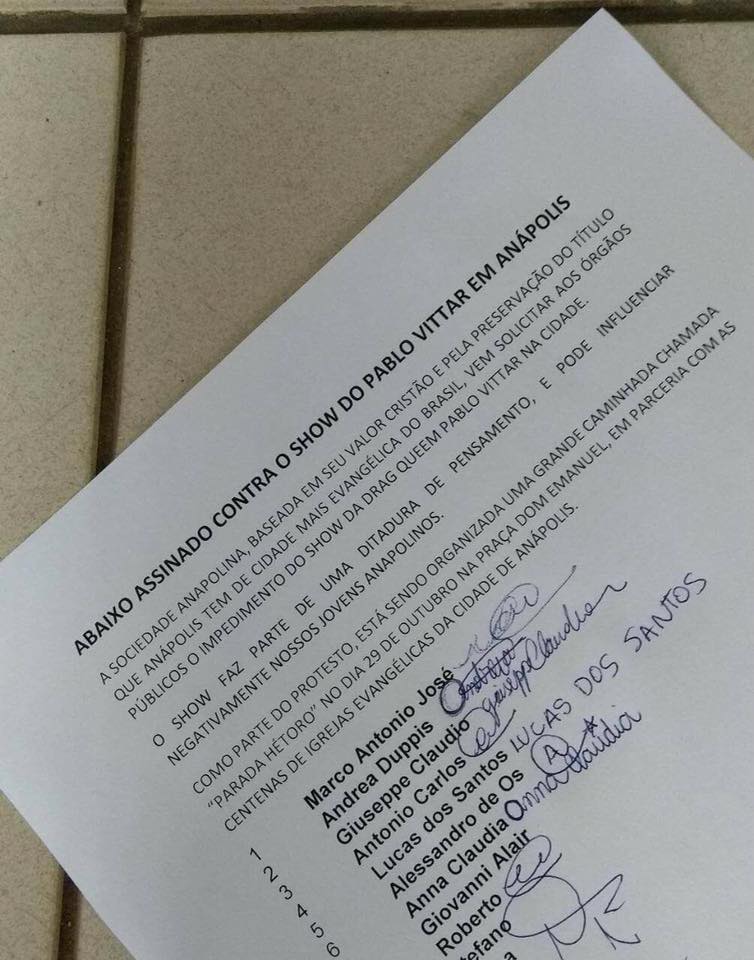 ABAIXO ASSINADO CONTRA O SHOW DO PABLO VITTAR EM ANÁPOLIS
A SOCIEDADE ANAPOLINA, BASEADA EM SEU VALOR CRISTÃO E PELA PRESERVAÇÃO DO TÍTULO
QUE ANÁPOLIS TEM DE CIDADE MAIS EVANGÉLICA DO BRASIL, VEM SOLICITAR AOS ÓRGÃOS
PÚBLICOS O IMPEDIMENTO DO SHOW DA DRAG QUEEM PABLO VITTAR NA CIDADE.
O SHOW FAZ PARTE DE UMA DITADURA DE PENSAMENTO, E PODE INFLUENCIAR
NEGATIVAMENTE NOSSOS JOVENS ANAPOLINOS.
COMO PARTE DO PROTESTO, ESTÁ SENDO ORGANIZADA UMA GRANDE CAMINHADA CHAMADA
"PARADA HÉTORO" NO DIA 29 DE OUTUBRO NA PRAÇA DOM EMANUEL, EM PARCERIA COM AS
CENTENAS DE IGREJAS EVANGÉLICAS DA CIDADE DE ANÁPOLIS.
1 Marco Antonio José
2 Andrea Duppis
3 Giuseppe Claudio giuseppe Claudio
4 Antonio Carlos
5 Lucas dos Santos LUCAS DOS SANTOS
6 Alessandro de Os A
Anna Claudia anna Claúdia
Giovanni Alair
Roberto
tefano
a